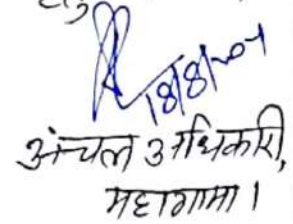 18/8/2021
अंचल अधिकारी,
महागामा।